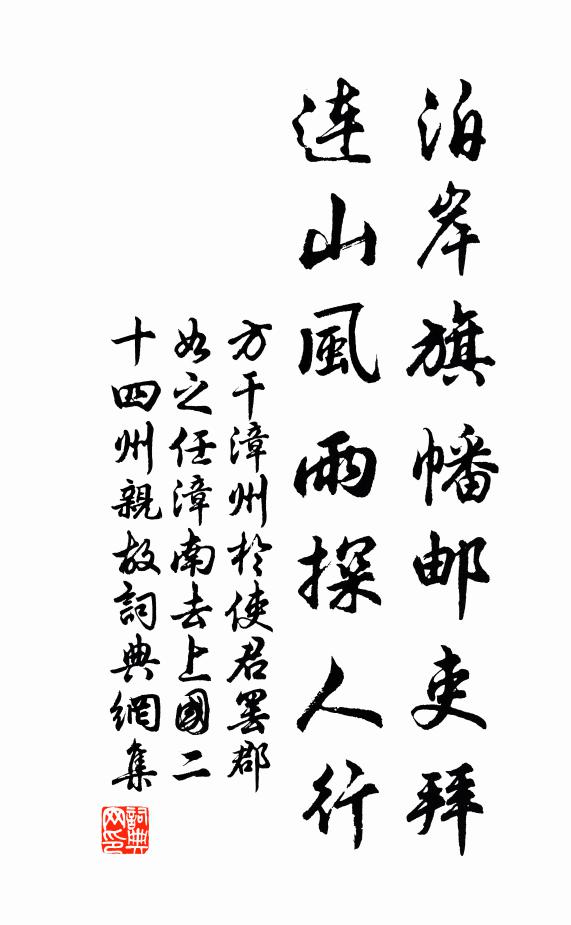 泊岸旗幡邮吏拜
連山風雨探人行
方干漳州於使君罢郡
如之任漳南去上國二
十四州親故詞典網集
詞典网印